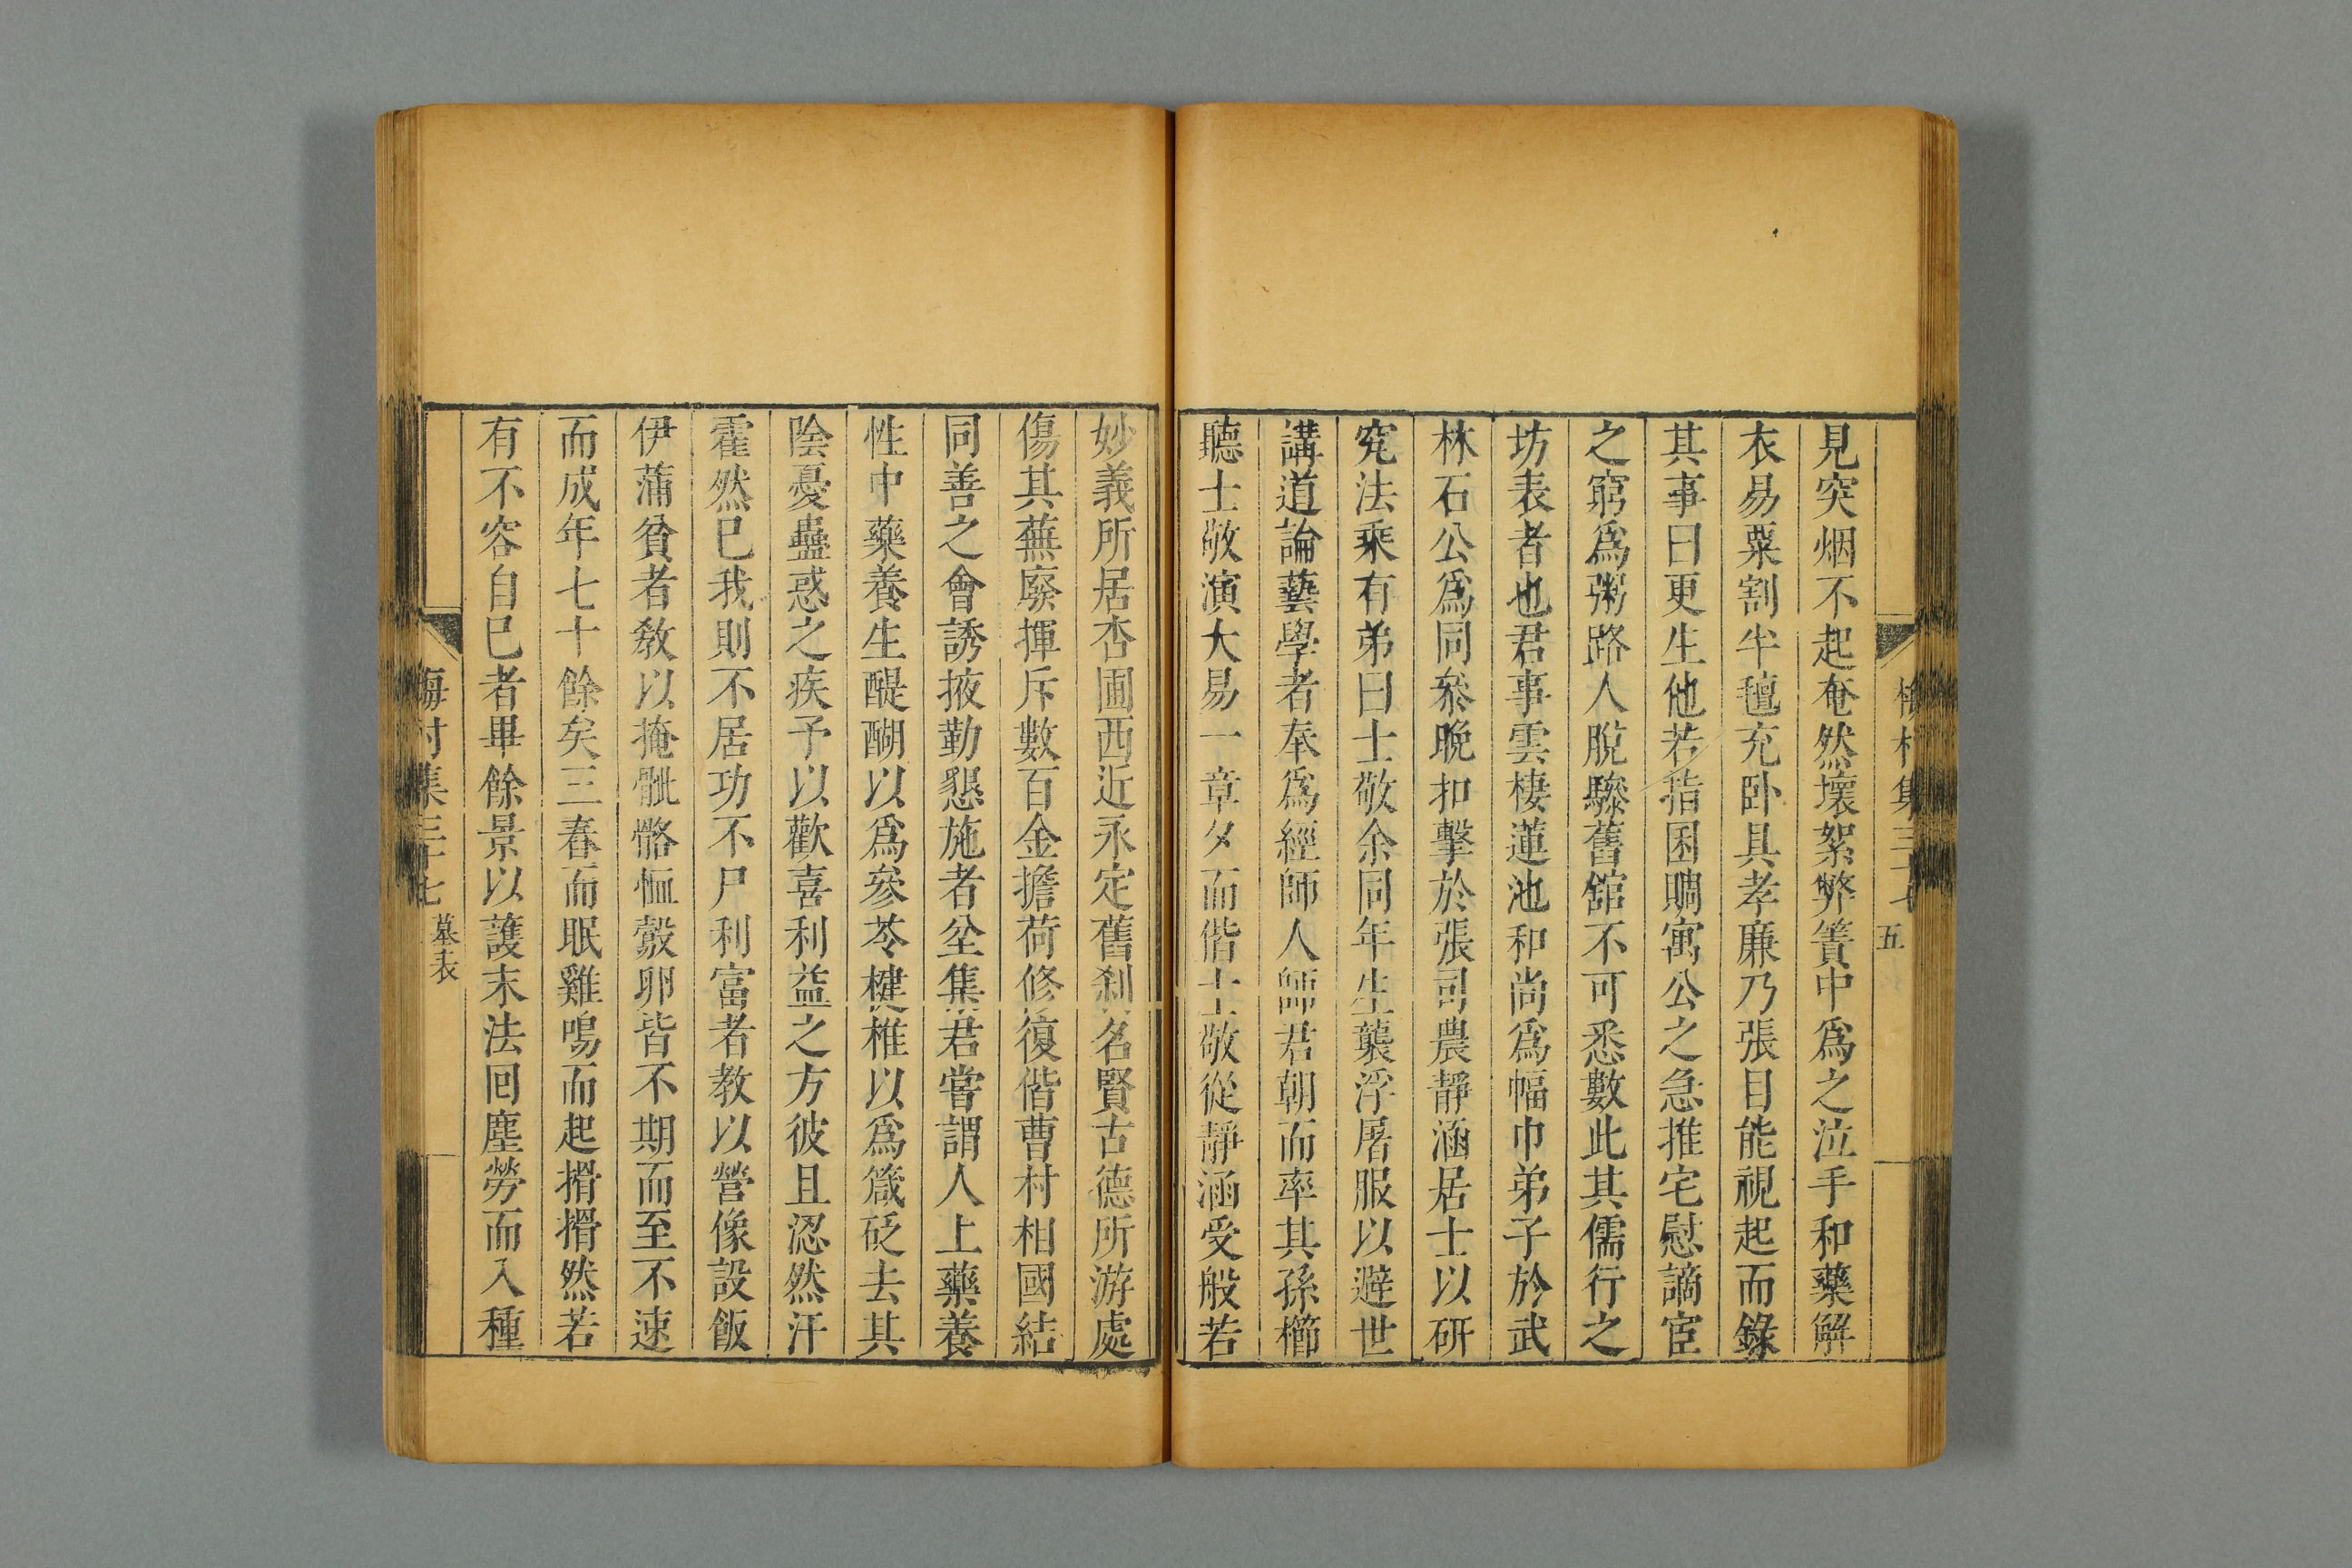 梅村集三十七
五
見突烟不起奄然壞絮弊簀中爲之泣手和藥解
衣易粟割半氊充卧具孝廉乃張目能視起而錄
其事曰更生他若指囷賙寓公之急推宅慰謫宦
之窮爲粥路人脫驂舊舘不可悉數此其儒行之
坊表者也君事雲棲蓮池和尚爲幅巾弟子於武
林石公爲同叅晚扣擊於張司農靜涵居士以硏
究法乘有弟曰士敬余同年生襲浮屠服以避世
講道論藝學者奉爲經師人師君朝而率其孫櫛
聽士敬演大易一章夕而偕士敬從靜涵受般若
妙義所居杏圃西近永定舊刹名賢古德所游處
傷其蕪廢揮斥數百金擔荷修復偕曹村相國結
同善之會誘掖勤懇施者坌集君嘗謂人上藥養
性中藥養生醍醐以爲參苓楗椎以爲箴砭去其
陰憂蠱惑之疾予以歡喜利益之方彼且涊然汗
霍然已我則不居功不尸利富者教以營像設飯
伊蒲貧者敎以掩骴骼恤鷇卵皆不期而至不速
而成年七十餘矣三春而眠雞鳴而起搰搰然若
有不容自已者畢餘景以護末法囘塵勞而入種
梅村集三十七
墓表